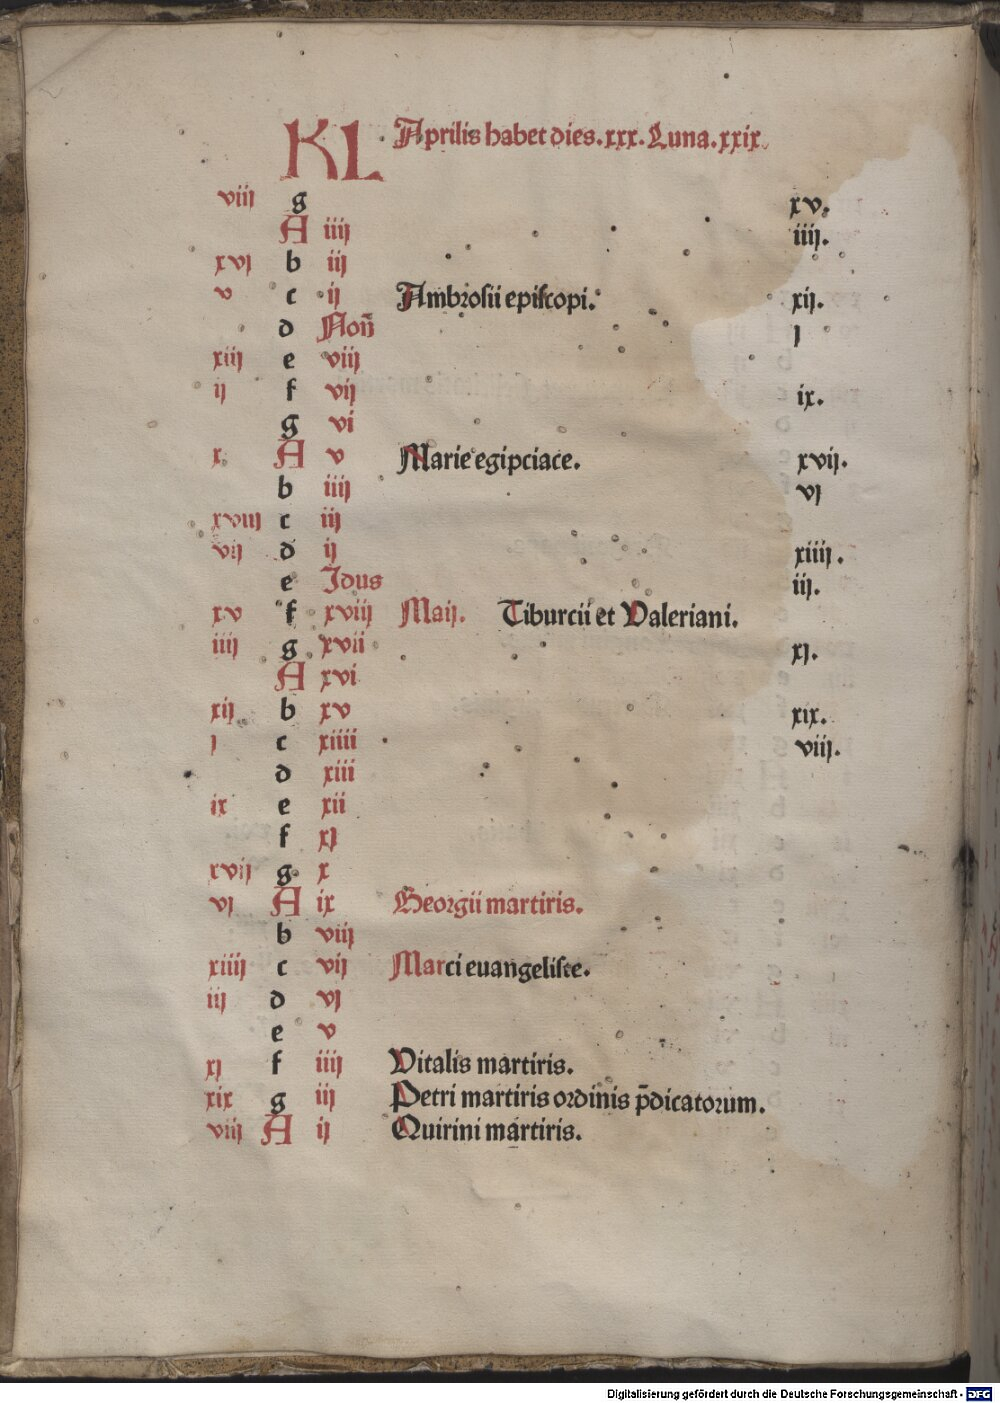 KL Aprilis habet dies.xxx.Luna.xxix.
viij g xv.
A iiij iiij.
xvj b iij
v c ij Ambrosii episcopi. xij.
d Non̄ j
xiij e viij
ij f vij ix.
g vi
x A v Marie egipciace. xvij.
b iiij vj
xviij c iij
vij d ij xiiij.
e Idus iij.
xv f xviij Maij. Tiburcii et Valeriani.
iiij g xvii xj.
A xvi
xij b xv xix.
j c xiiii viij.
d xiii
ix e xii
f xj
xvij g x
vj A ix Georgii martiris.
b viij
xiiij c vij Marci euangeliste.
iij d vj
e v
xj f iiij Vitalis martiris.
xix g iij Petri martiris ordinis p̄dicatorum.
viij A ij Quirini martiris.
Digitalisierung gefördert durch die Deutsche Forschungsgemeinschaft - DFG